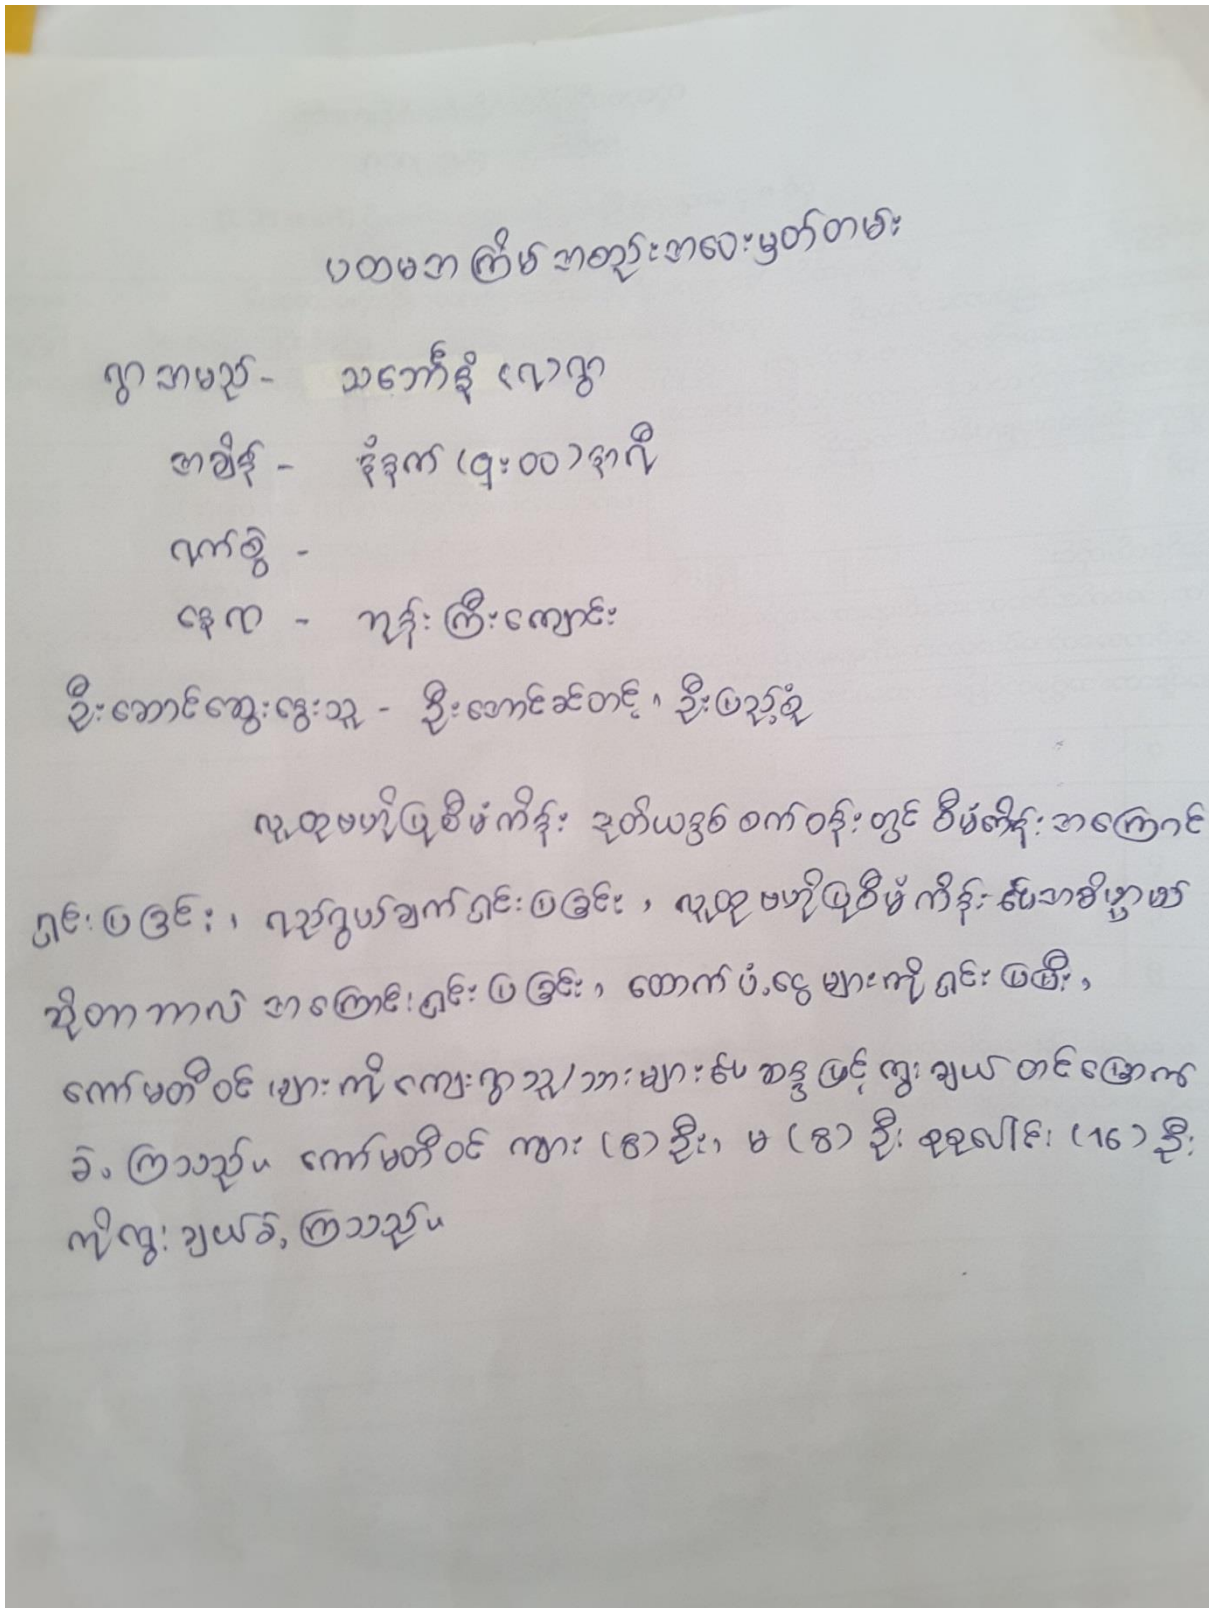 ပထမအကြိမ်အစည်းအဝေးမှတ်တမ်း
ရွာအမည် - သင်္ဘောနို (လ)ရွာ
အချိန် - နံနက် (၉း၀၀) နာရီ
ရက်စွဲ -
နေရာ - ဘုန်းကြီးကျောင်း
ဦးဆောင်ဆွေးနွေးသူ - ဦးအောင်ခင်တင့်၊ ဦးပြည့်စုံ
လူထုဗဟိုပြုစီမံကိန်း ဒုတိယနှစ်စက်ဝန်းတွင် စီမံကိန်းအကြောင်
ရှင်းပြခြင်း၊ ရည်ရွယ်ချက်ရှင်းပြခြင်း၊ လူထုဗဟိုပြုစီမံကိန်း၏အဓိပ္ပာယ်
ဆိုတာဘာလဲ အကြောင်းရှင်းပြခြင်း၊ ထောက်ပံ့ငွေများကိုရှင်းပြပြီး၊
ကော်မတီဝင်များကိုကျေးရွာသူ/သားများ၏ ဆန္ဒဖြင့်ရွေးချယ်တင်မြှောက်
ခဲ့ကြသည်။ ကော်မတီဝင် ကျား (8) ဦး၊ မ (8) ဦး စုစုပေါင်း (16) ဦး
ကိုရွေးချယ်ခဲ့ကြသည်။